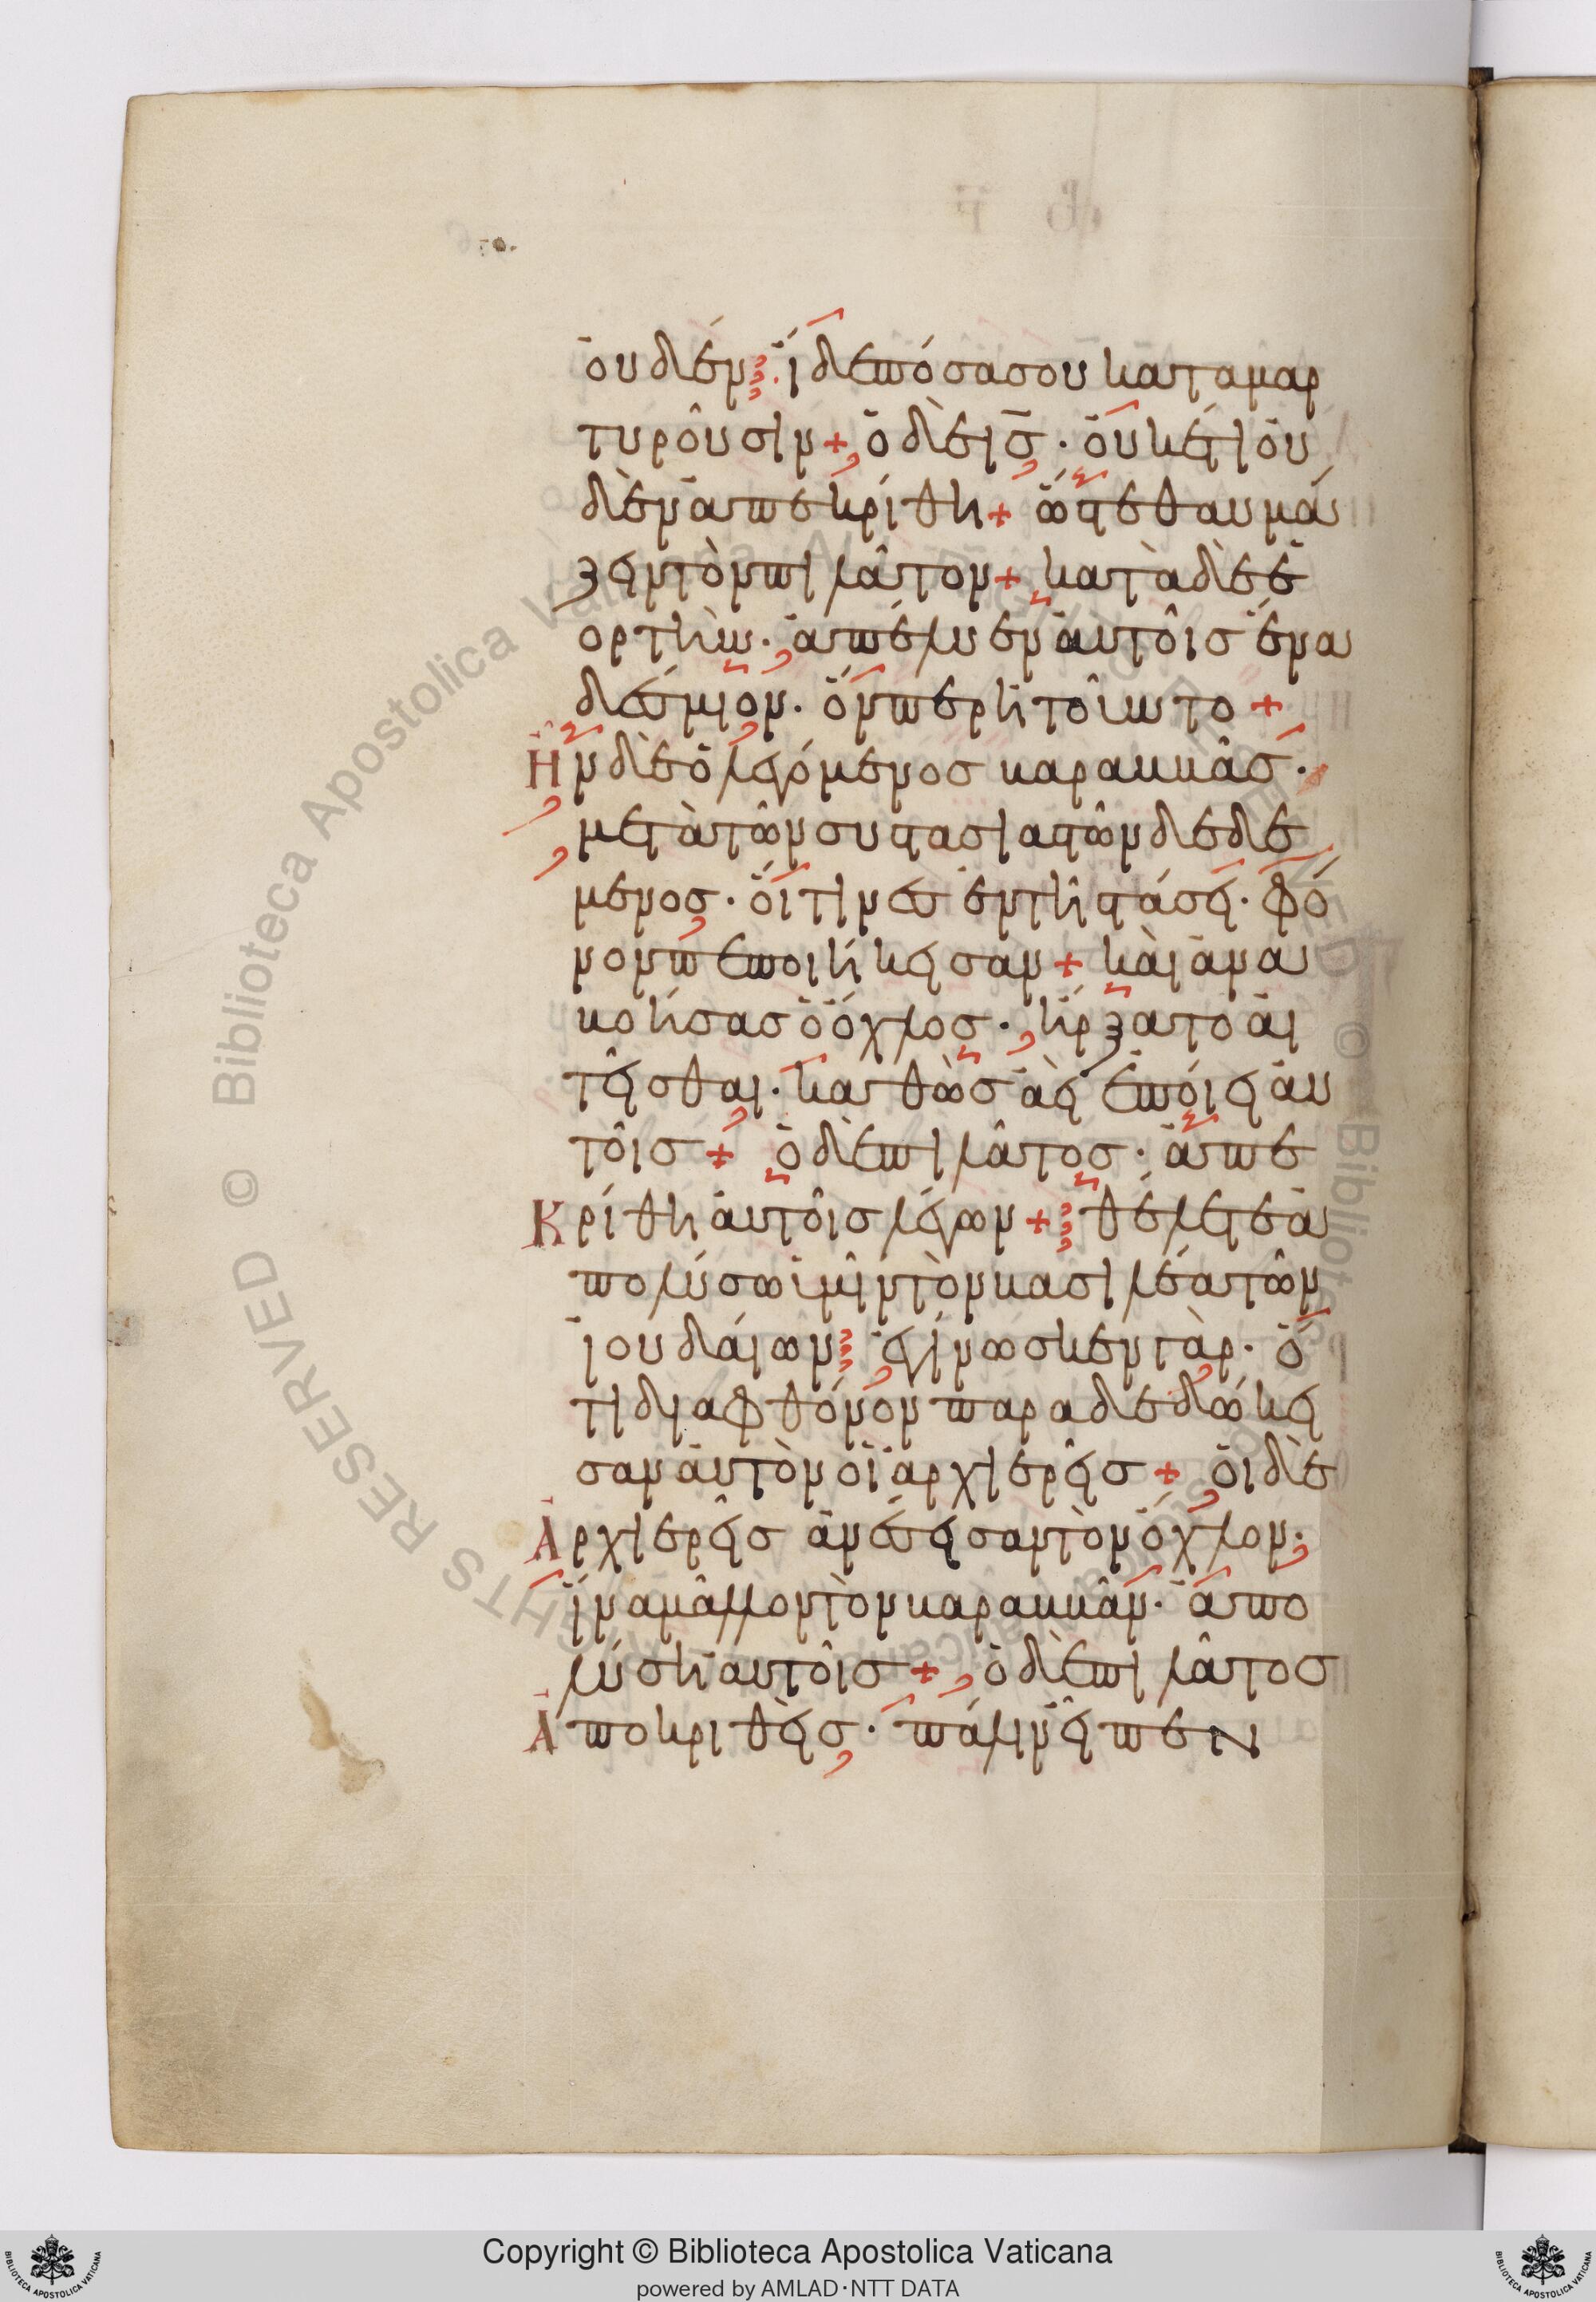 οὐδέν· ἴδε πόσα σου καταμαρ
τυροῦσιν + ὁ δὲ ις̄ · οὐκέτι οὐ
δὲν ἀπεκρίθη + ὥστε θαυμά
ζειν τὸν πιλᾶτον + κατὰ δὲ ἑ
ορτὴν · ἀπέλυεν αὐτοῖς ἕνα
δέσμιον · ὅνπερ ἠτοῦντο +
Ἦν δὲ ὁ λεγόμενος βαραββᾶς ·
μετὰ τῶν συστασιαστῶν δεδε
μένος · οἵτινες ἐν τῆ στάσει · φό
νον πεποιήκεισαν + καὶ ἀνα
βοήσας ὁ ὄχλος · ἤρξατο αἰ
τεῖσθαι · καθὼς ἀεὶ ἐποίει αὐ
τοῖς + ὁ δὲ πιλᾶτος · ἀπε
Κρίθη αὐτοῖς λέγων + θέλετε ἀ
πολύσω ὑμῖν τὸν βασιλέα τῶν
ἰουδαίων · ἐγίνωσκεν γὰρ · ὅ
τι διὰ φθόνον παραδεδώκει
σαν αὐτὸν οἱ ἀρχιερεῖς + οἱ δὲ
Ἀρχιερεῖς ἀνέσεισαν τὸν ὄχλον ·
ἵνα μᾶλλον τὸν βαραββᾶν · ἀπο
λύση αὐτοῖς + ὁ δὲ πιλᾶτος
Ἀποκριθεὶς · πάλιν εἶπεν
Copyright © Biblioteca Apostolica Vaticana
powered by AMLAD·NTT DATA